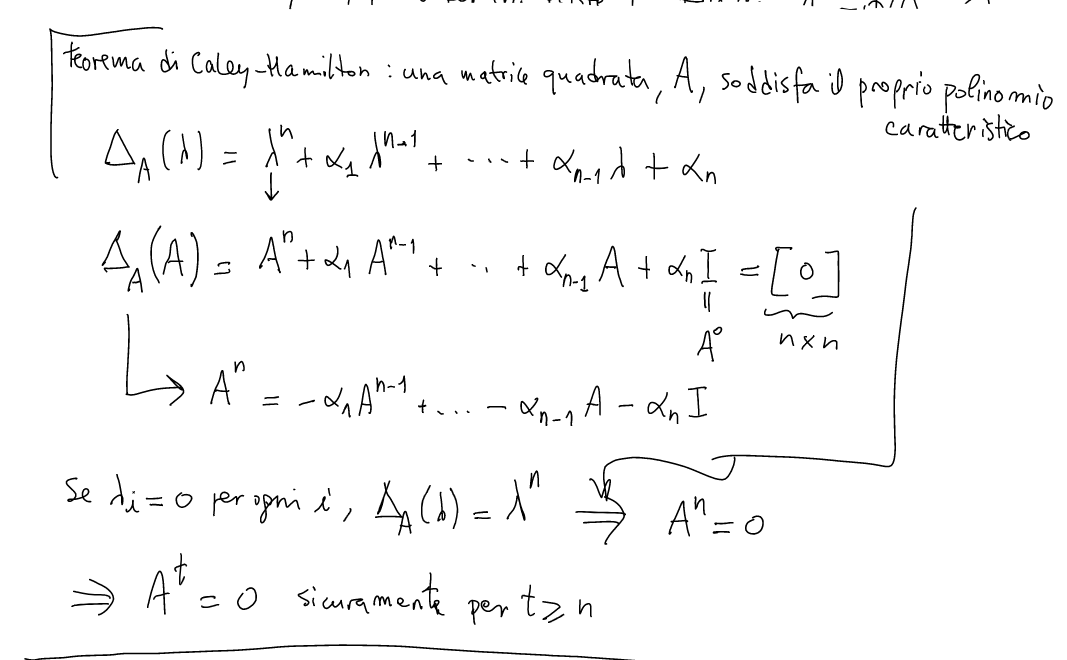 teorema di Caley-Hamilton : una matrice quadrata, A, soddisfa il proprio polinomio
caratteristico
Δ_A(λ) = λ^n + α_1 λ^{n-1} + ... + α_{n-1} λ + α_n
↓
Δ_A(A) = A^n + α_1 A^{n-1} + .. + α_{n-1} A + α_n I = [0]
॥
A^0 n×n
→ A^n = -α_1 A^{n-1} + .... - α_{n-1} A - α_n I
Se λ_i = 0 per ogni i, Δ_A(λ) = λ^n ⇒ A^n = 0
⇒ A^t = 0 sicuramente per t ≥ n